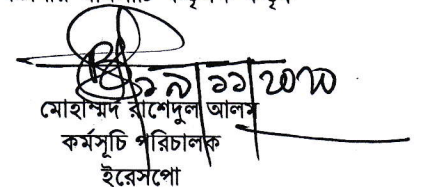 ১৯/১১/২০২০
মোহাম্মদ রাশেদুল আলম
কর্মসূচি পরিচালক
ইরেসপো